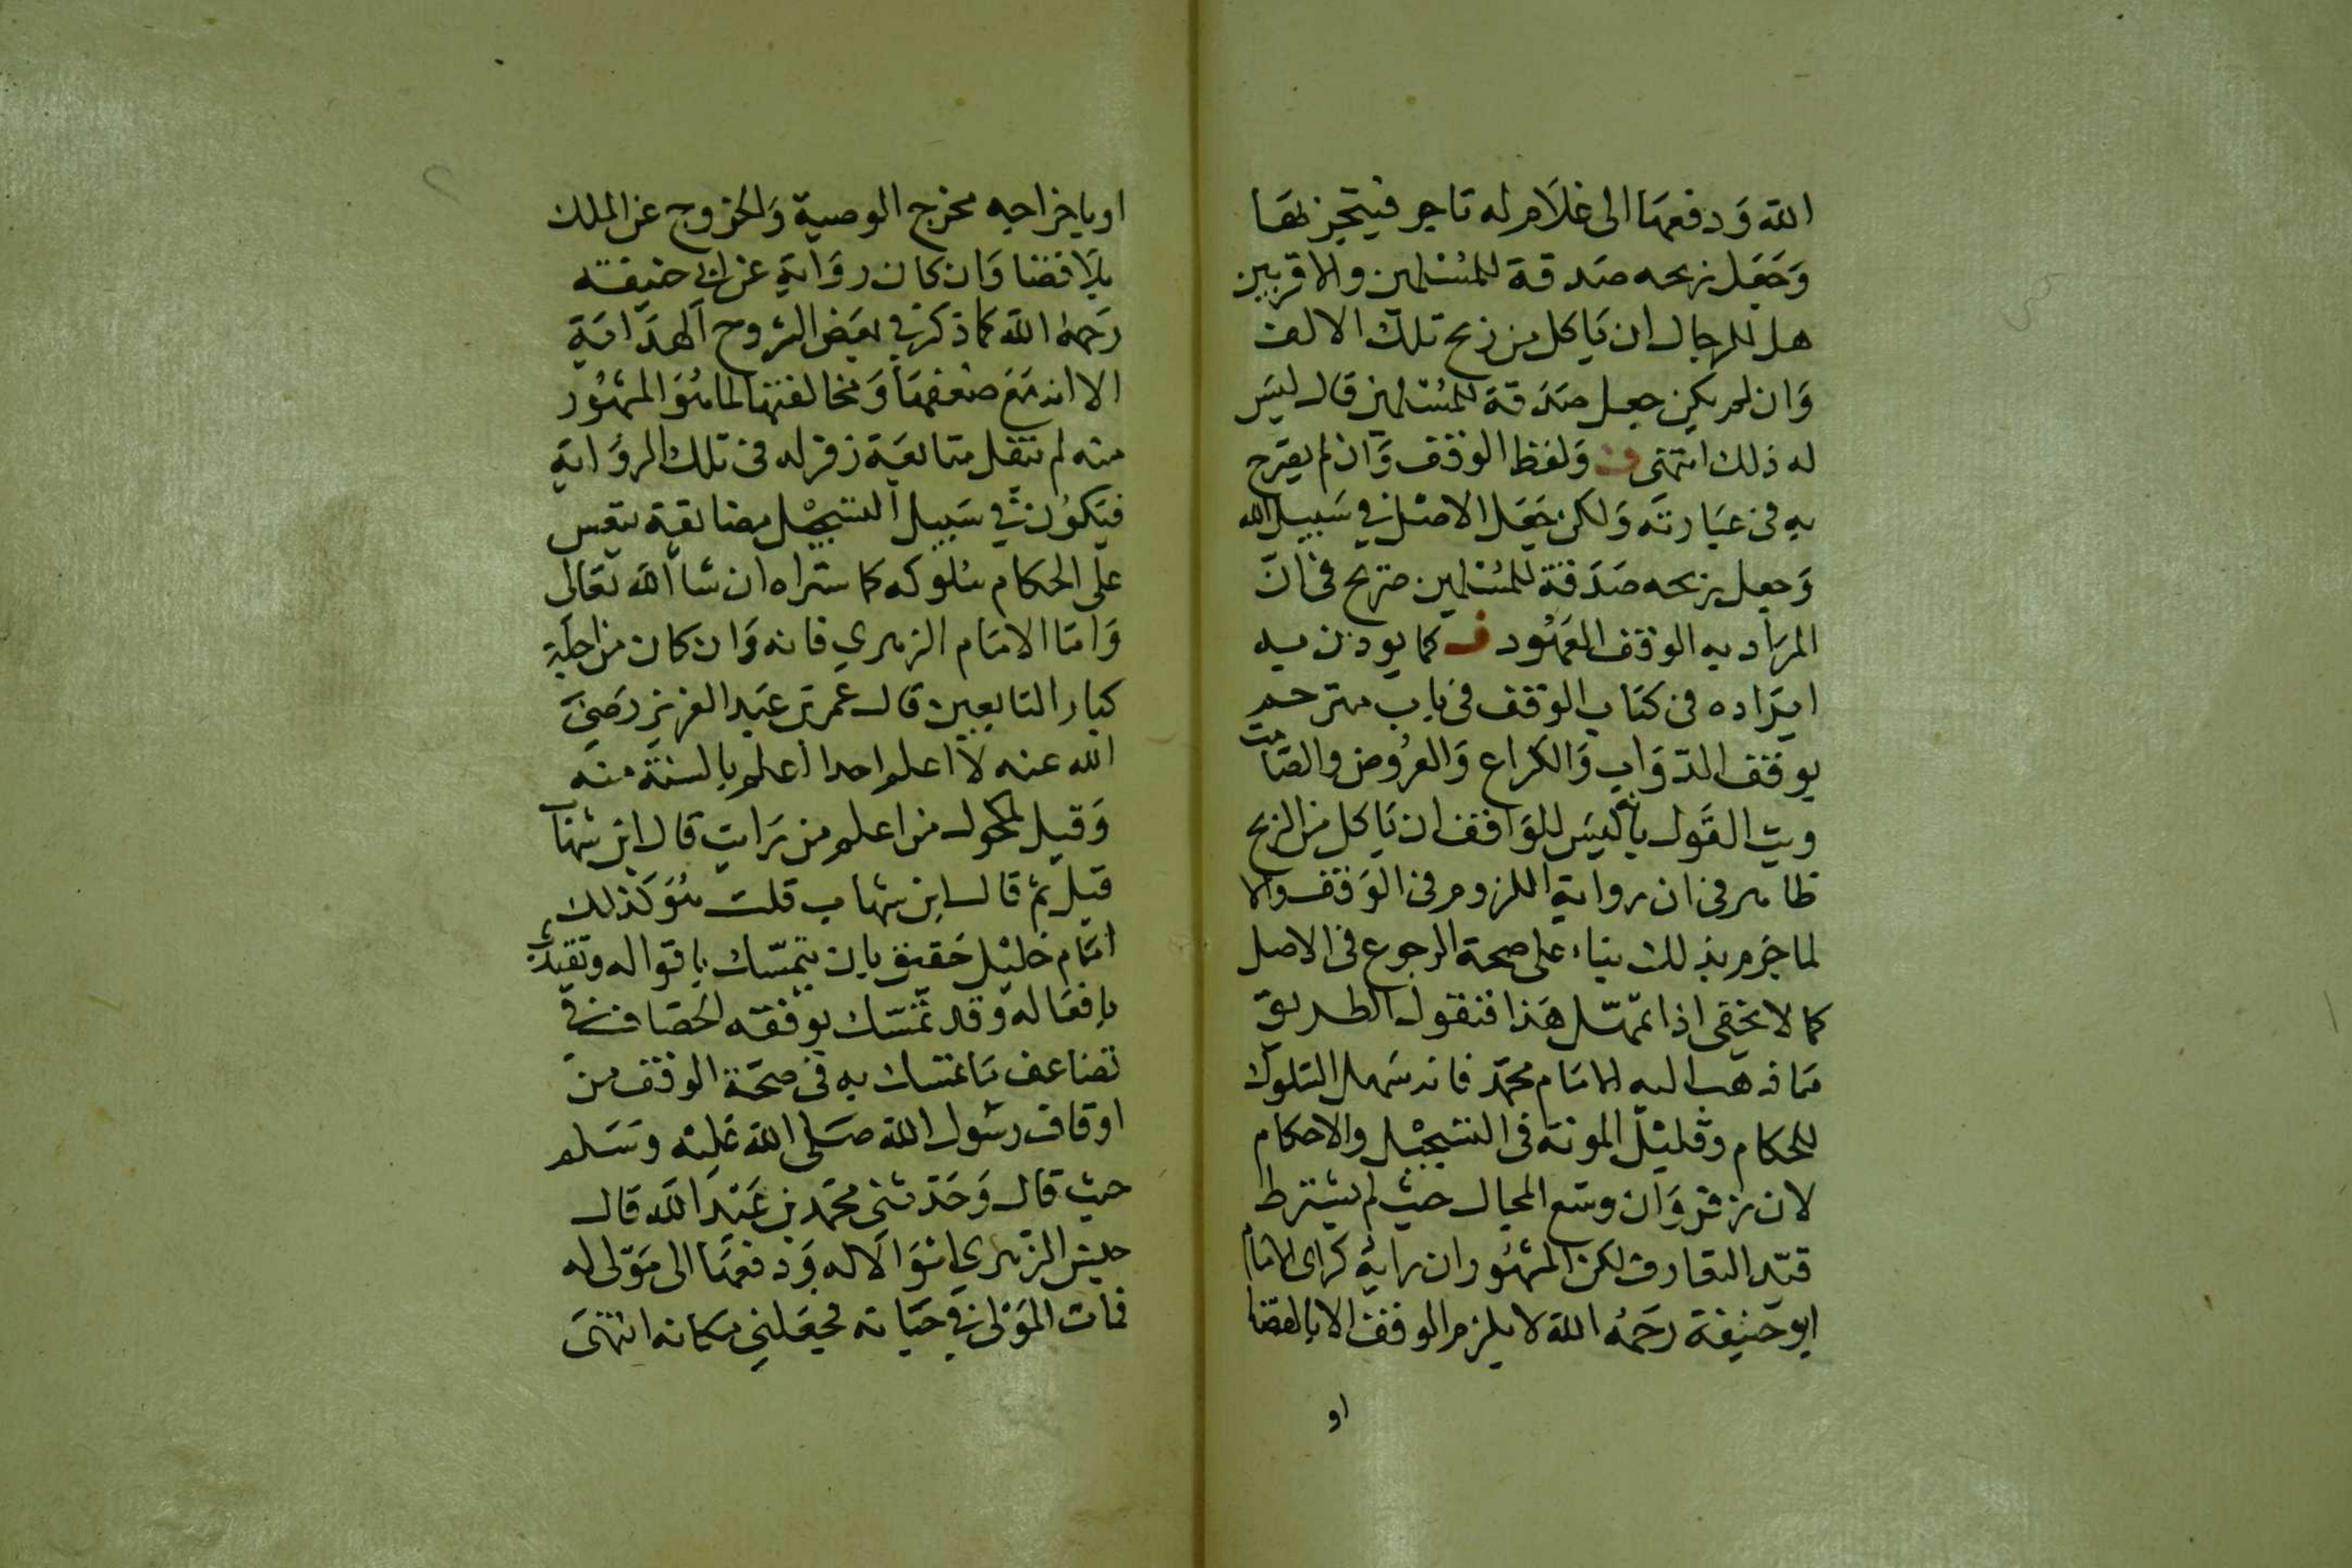 الله وَدفعهَا الى غلَام له تاجر فيتجز بهَا
وَجَعَل ربحه صَدقة للمُسْلمين والاقربين
هل للرجال ان يَاكل من ربح تلك الالف
وَان لم يكن جعل صَدَقة للمُسْلمين قال ليسَ
له ذلك انتهى ف وَلفظ الوقف وَان لم يصَرح
به فى عبَارته وَلكن جَعَل الاصْل في سَبيل الله
وَجعل ربحه صَدَقة للمُسْلمين صَريح فى انّ
المرَاد به الوقف المعهُود ف كما يوذن به
ايرَاده فى كتَاب الوقف فى بَاب مترجم
بوقف الدوَاب وَالكراع وَالعرُوض والصَامت
وبت القَول بانه ليسَ للوَاقف ان يَاكل من الربح
ظاهر فى ان رواية اللزوم فى الوَقف والا
لما جزم بذلك بناء على صحة الرجوع فى الاصل
كما لا يخفى اذا تمهّل هَذا فنقول الطريق
مَا ذهب اليه الامَام محمّد فانه سَهل السّلوك
للحكام وقليْل المونة فى التسجيْل والاحكام
لان زفر وَان وسّع المجال حيث لم يشترط
قيّد التعارف لكن المشهُور ان رايه كراى الامَام
ابو حَنيفة رحَمُه الله لا يلزم الوقف الا بالقضا
او
او باخراجه مخرج الوصية وَالخروج عن الملك
بلَا قضا وَان كان روَاية عن ابي حنيفة
رَحمهُ الله كما ذكر في بعَض الشروح الهدَاية
الا انه مَع ضعفهَا وَمخالفتها لما هُوَ المشهُور
منه لم ينقل متابعَة زفر له فى تلك الروَاية
فيَكوُن في سَبيل التسجيْل مضايقة يتعسر
على الحكام سُلوكه كما ستراه ان شا الله تعَالى
وَامَا الامَام الزهري فانه وَان كان من اجلة
كبار التابعين قال عمر بن عَبد العزيز رَضيَ
الله عنه لا اعلم احدا اعلم بالسنة منه
وَقيل لمكحول من اعلم من رَايت قال ابن شهَاب
قيل ثم قال ابن شهاب قلت هُوَ كَذلك
امَام جليْل حَقيق بان يتمسّك باقواله وتقيد
بافعَاله وقد تمسّك بوقفه الخصَاف في
تضاعف مَا تمسك به فى صحَة الوقف من
اوقاف رسُول الله صَلى الله عَليْه وسَلم
حيث قال وَحَدثنى محمّد بن عَبْد الله قال
حبس الزهري امْوَالا له وَدفعهَا الى مَوْلى له
فمات المَوْلى في حيَاته فجعَلني مكانه انتهَى